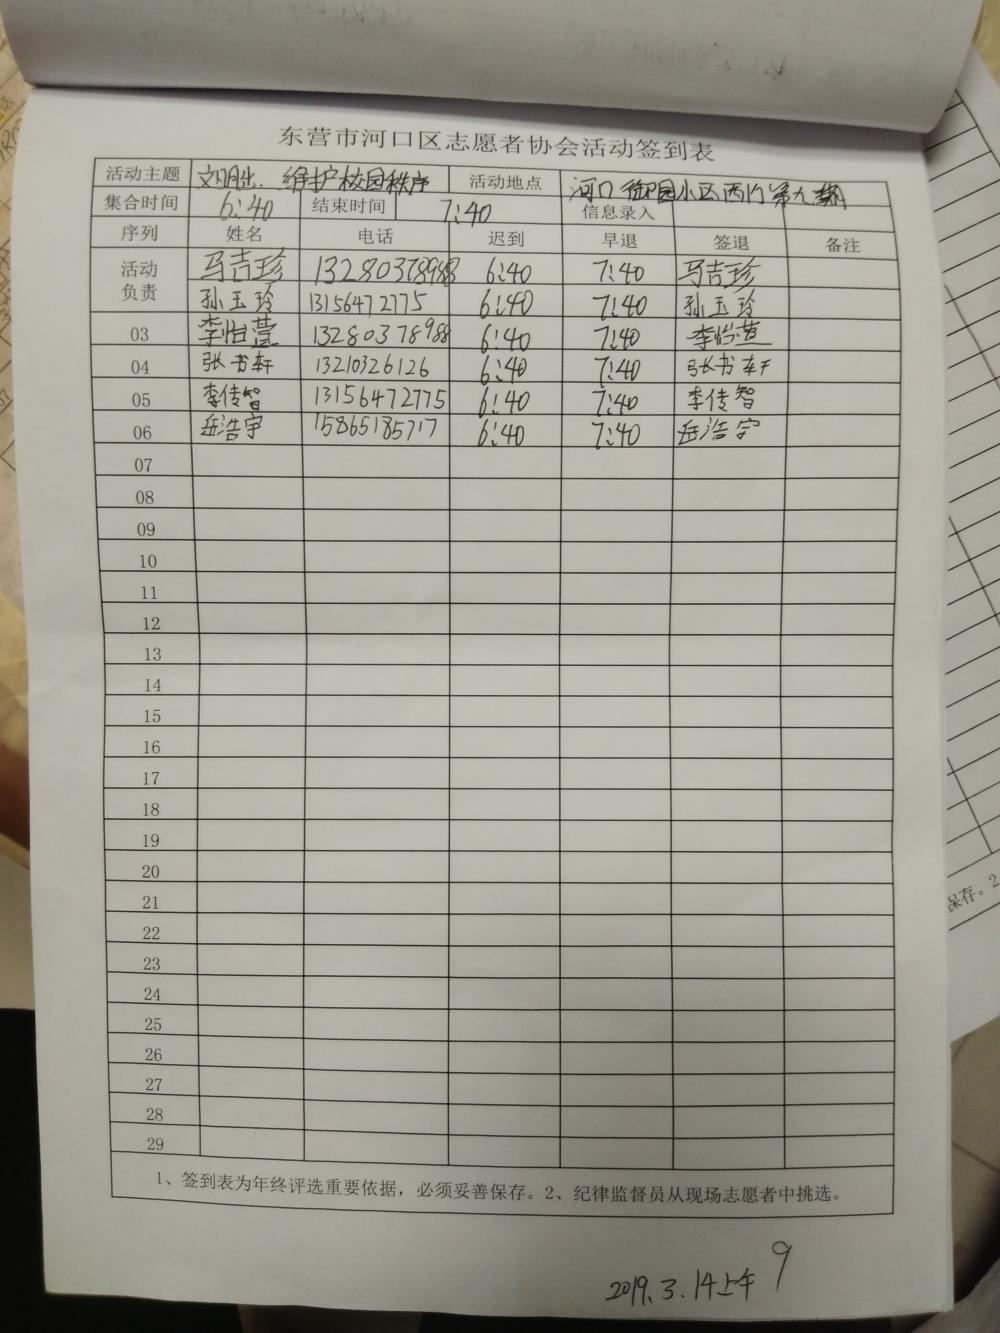 东营市河口区志愿者协会活动签到表
活动主题 文明出 维护校园秩序 活动地点 河口御园小区西门第九期
集合时间 6:40 结束时间 7:40 信息录入
序列 姓名 电话 迟到 早退 签退 备注
活动负责 马吉珍 13280378988 6:40 7:40 马吉珍
孙玉玲 13156472775 6:40 7:40 孙玉玲
03 李怡萱 13280378988 6:40 7:40 李怡萱
04 张书轩 13210326126 6:40 7:40 张书轩
05 李传智 13156472775 6:40 7:40 李传智
06 岳浩宇 15865185717 6:40 7:40 岳浩宇
07
08
09
10
11
12
13
14
15
16
17
18
19
20
21
22
23
24
25
26
27
28
29
1、签到表为年终评选重要依据，必须妥善保存。2、纪律监督员从现场志愿者中挑选。
2019.3.14上午 9
保存。2